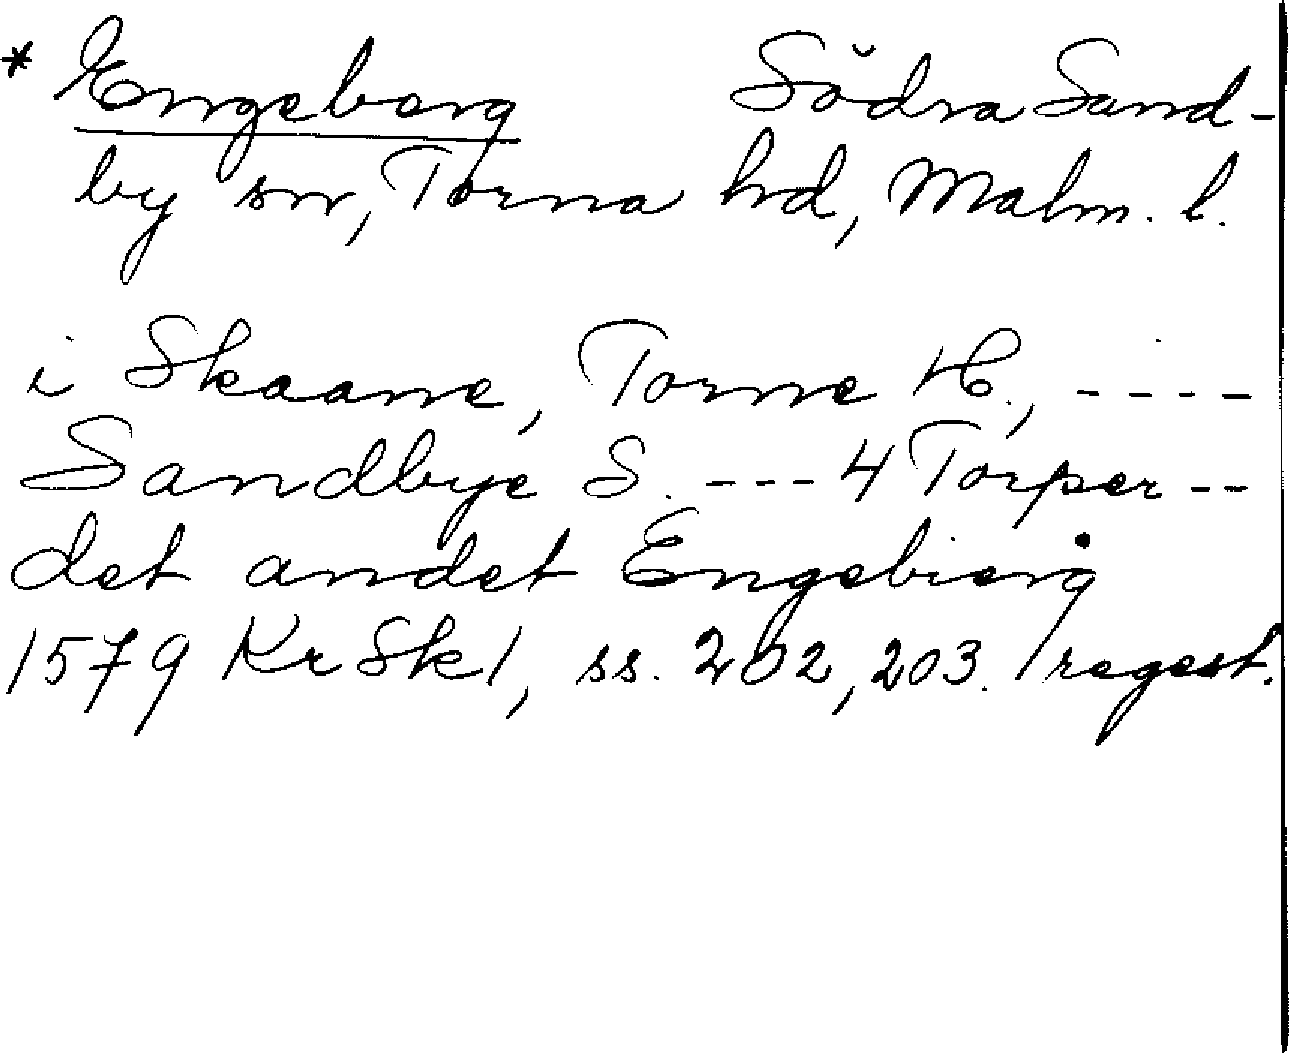 * Engeberg Södra Sand-
by sn, Torna hd, Malm. l.
i Skaane, Torne H., ----
Sandbye S. --- 4 Torper --
det andet Engebierg
1579 KrSk1, ss. 202, 203. /regest.